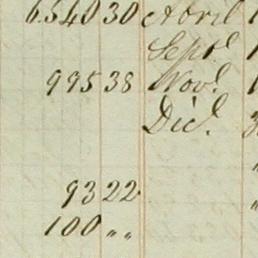 6540 30 Abril 1
Sept.e
995 38 Nov.e 1
Dic.e 3
93 22
100 „ „